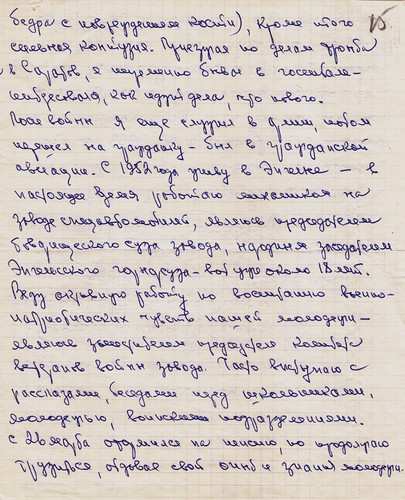 15
бедра с повреждением кости), кроме того
сильная контузия. Приезжая по делам фронта
в Саратов, я непременно бывал в госпитале-
интересовался, как идут дела, что нового.
После войны я еще служил в армии, потом
перешел на гражданку - был в гражданской
авиации. С 1952 года живу в Энгельсе - в
настоящее время работаю механиком на
заводе спецавтомобилей, являюсь председателем
товарищеского суда завода, народным заседателем
Энгельсского горнарсуда - вот уже около 18 лет.
Веду активную работу по воспитанию военно-
патриотических чувств нашей молодежи -
являюсь заместителем председателя комитета
ветеранов войны завода. Часто выступаю с
рассказами, беседами перед школьниками,
молодежью, воинскими подразделениями.
с 26 марта оформился на пенсию, но продолжаю
трудиться, отдавая свой опыт и знания молодежи.